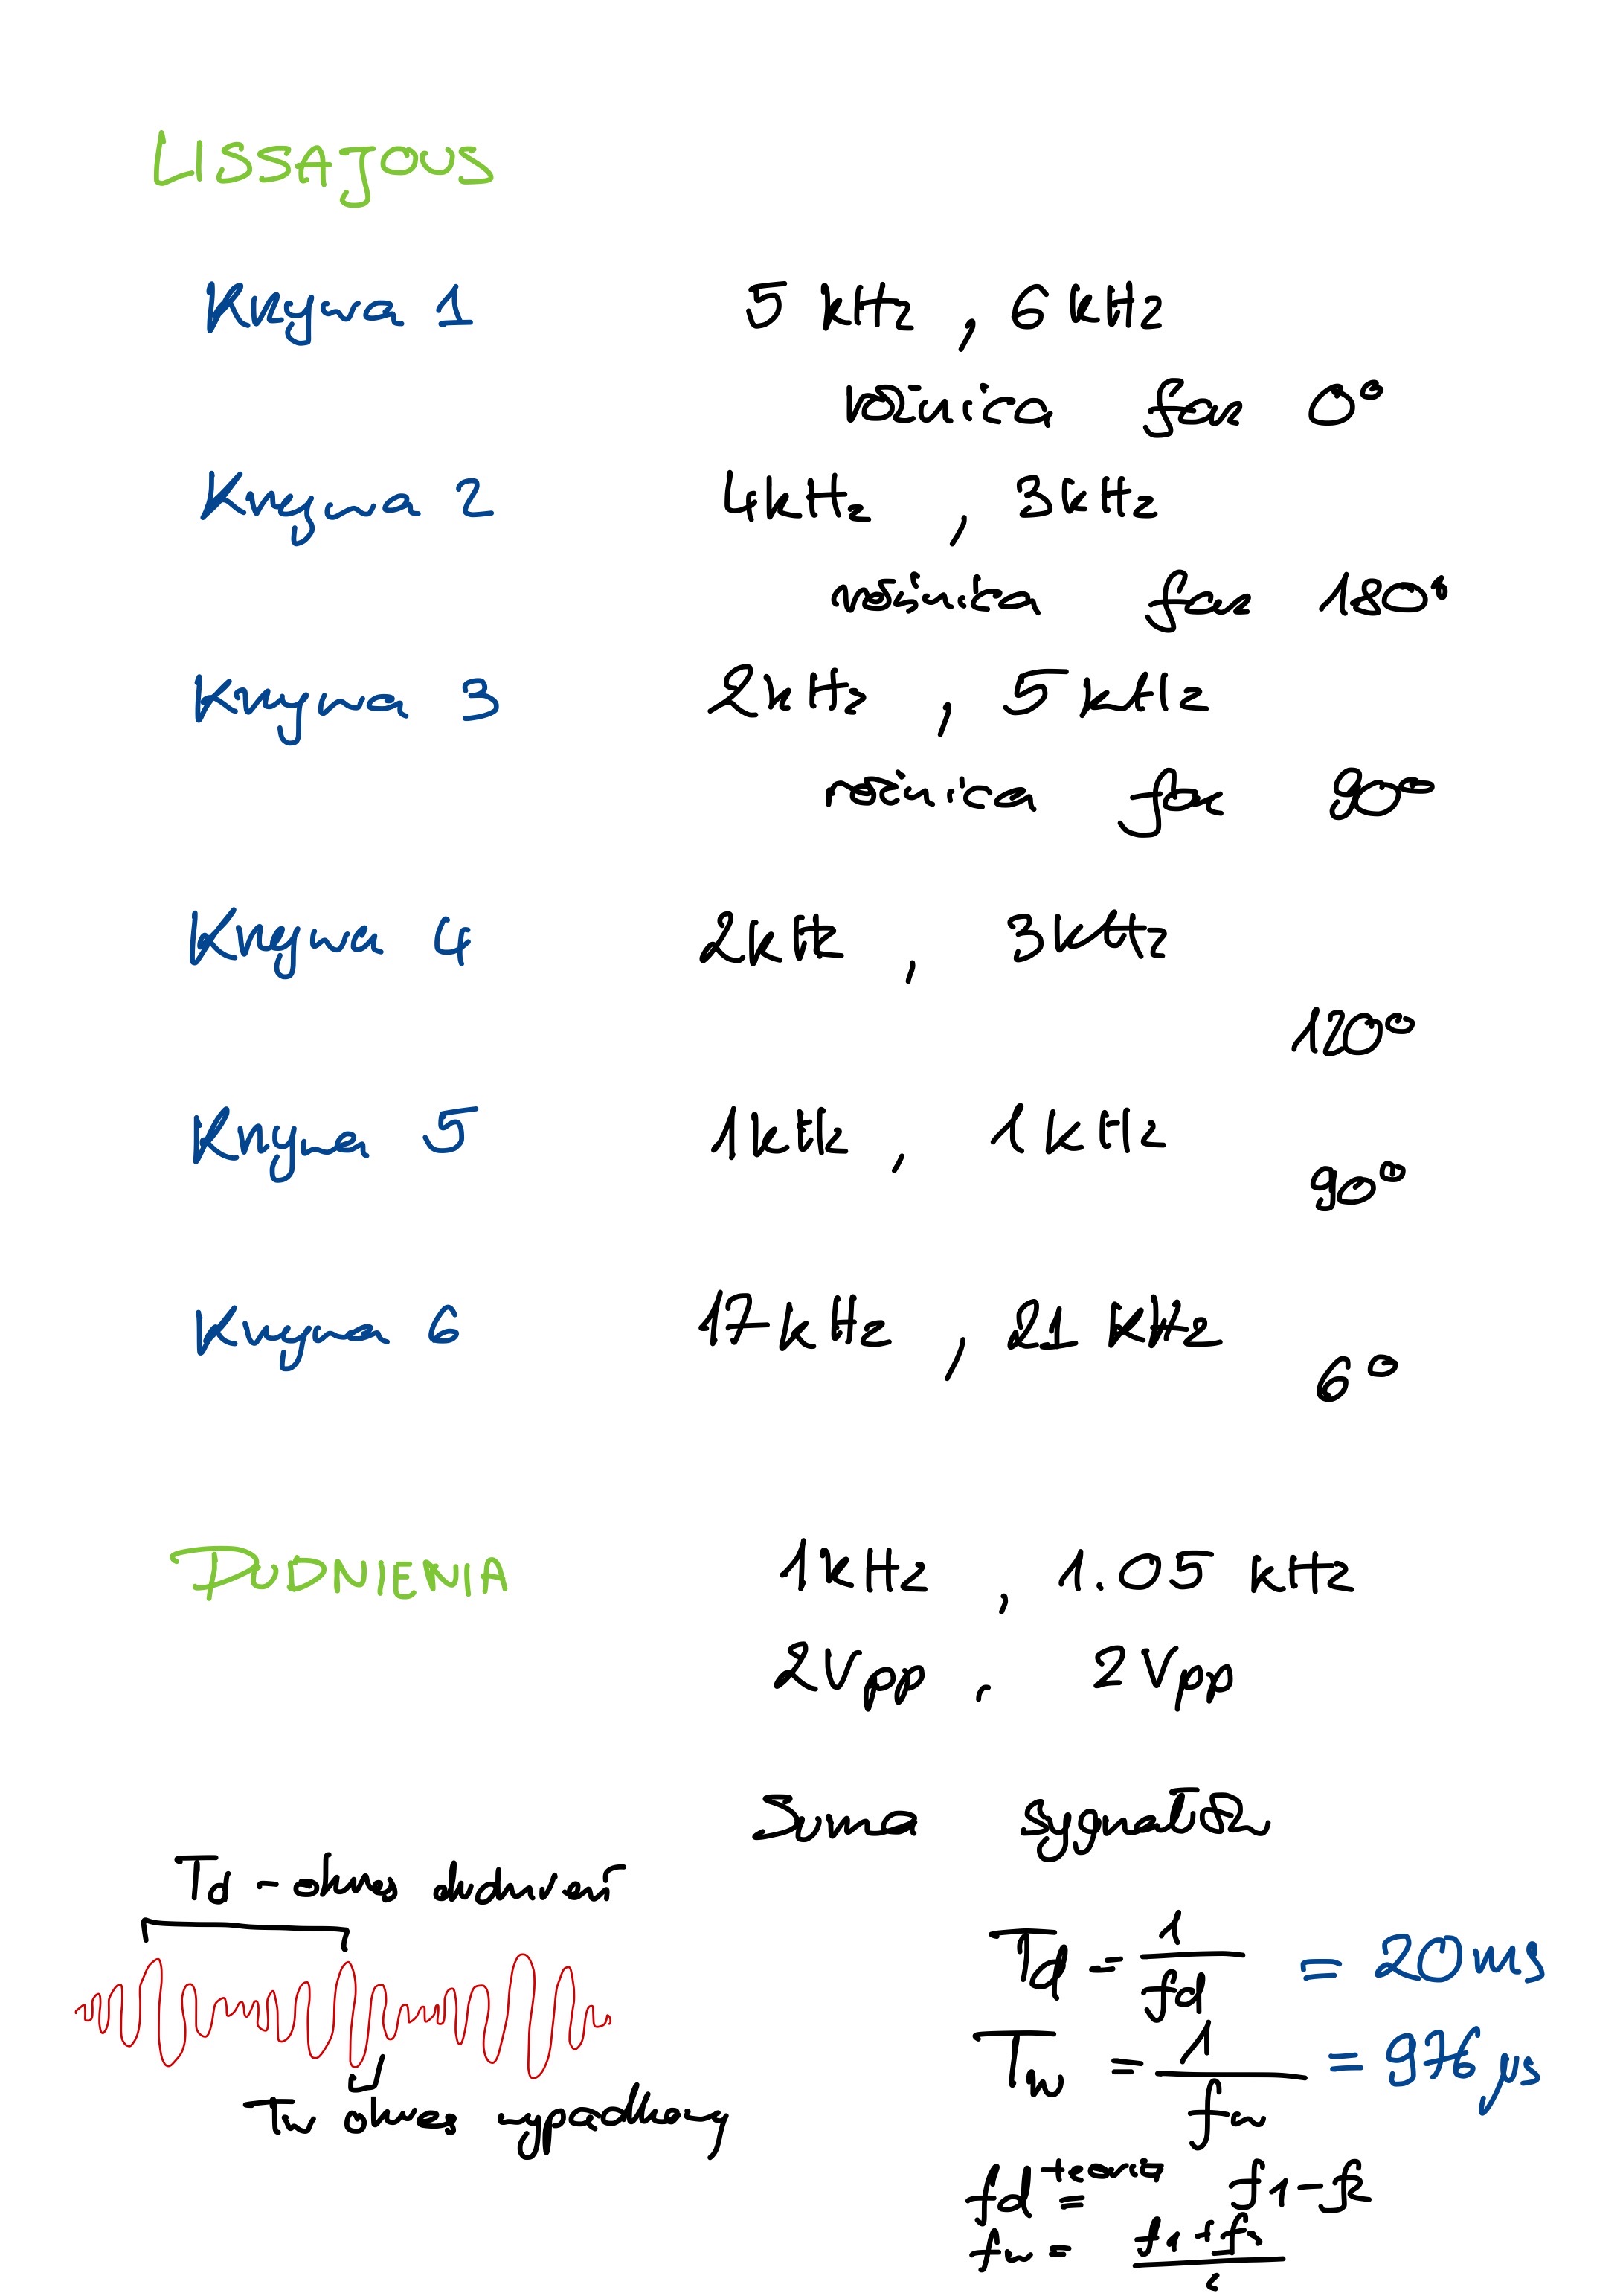 LISSAJOUS
Krzywa 1 5 kHz , 6 kHz
różnica faz 0°
Krzywa 2 4kHz , 3kHz
różnica faz 180°
Krzywa 3 2kHz , 5kHz
różnica faz 90°
Krzywa 4 2kHz , 3kHz
120°
Krzywa 5 1kHz , 1kHz
90°
Krzywa 6 17kHz , 21 kHz
6°
DUDNIENIA 1kHz , 1.05 kHz
2Vpp , 2Vpp
Suma sygnałów
Td - okres dudnień
Td = 1/fd = 20ms
Tw = 1/fw = 976 μs
Tw okres wypadkowy
fd teoria = f1-f2
fw = f1+f2 / 2